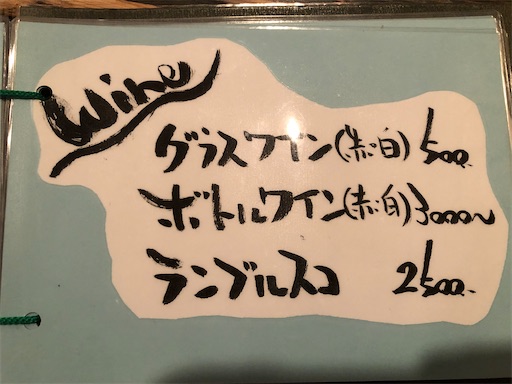 Wine
グラスワイン(赤・白) 500.
ボトルワイン(赤・白) 3000〜
ランブルスコ 2500.